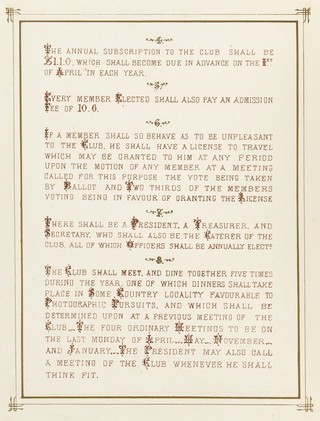 4.
The annual subscription to the club shall be
£1.1.0, which shall become due in advance on the 1st
of April in each year.
5.
Every member Elected shall also pay an admission
fee of 10.6.
6.
If a member shall so behave as to be unpleasant
to the Club, he shall have a license to travel
which may be granted to him at any period
upon the motion of any member at a meeting
called for this purpose the vote being taken
by Ballot and Two thirds of the members
voting being in favour of granting the License
7.
There shall be a President, a Treasurer, and
Secretary, who shall also be the Caterer of the
club, all of which Officers shall be annually elect^d
8.
The Club shall meet, and dine together five times
during the year, one of which dinners shall take
place in Some Country locality favourable to
Photographic Pursuits, and which shall be
determined upon at a previous meeting of the
Club... The four ordinary Meetings to be on
the last Monday of April... May... November...
and January... The President may also call
a meeting of the Club whenever he shall
think fit.